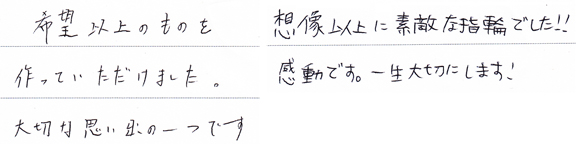 希望以上のものを
作っていただけました。
大切な思い出の一つです
想像以上に素敵な指輪でした!!
感動です。一生大切にします!